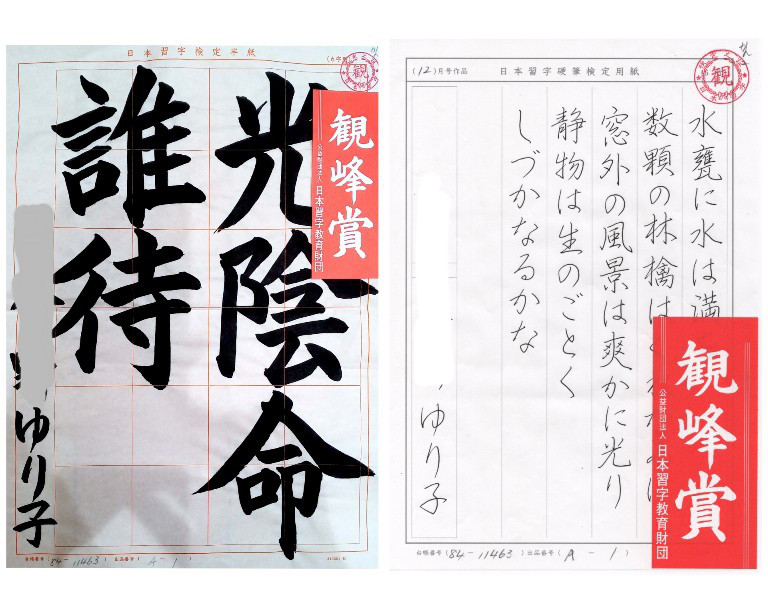 日本習字検定半紙
観
光陰命
誰待
ゆり子
観峰賞
公益財団法人
日本習字教育財団
台帳番号(84-11463)出品番号(A-1)
(12)月号作品 日本習字硬筆検定用紙
観
水甕に水は満
数顆の林檎は
窓外の風景は爽かに光り
静物は生のごとく
しづかなるかな
ゆり子
観峰賞
公益財団法人
日本習字教育財団
台帳番号(84-11463)出品番号(A-1)